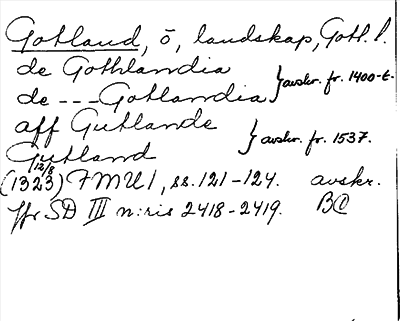 Gotland, ö, landskap, Gotl. l.
de Gothlandia
de --- Gotlandia } avskr. fr. 1400-t.
aff Gutlande
Gutland } avskr. fr. 1537.
12/8
(1323) FMU 1, ss. 121-124. avskr.
Jfr SD III n:ris 2418-2419.